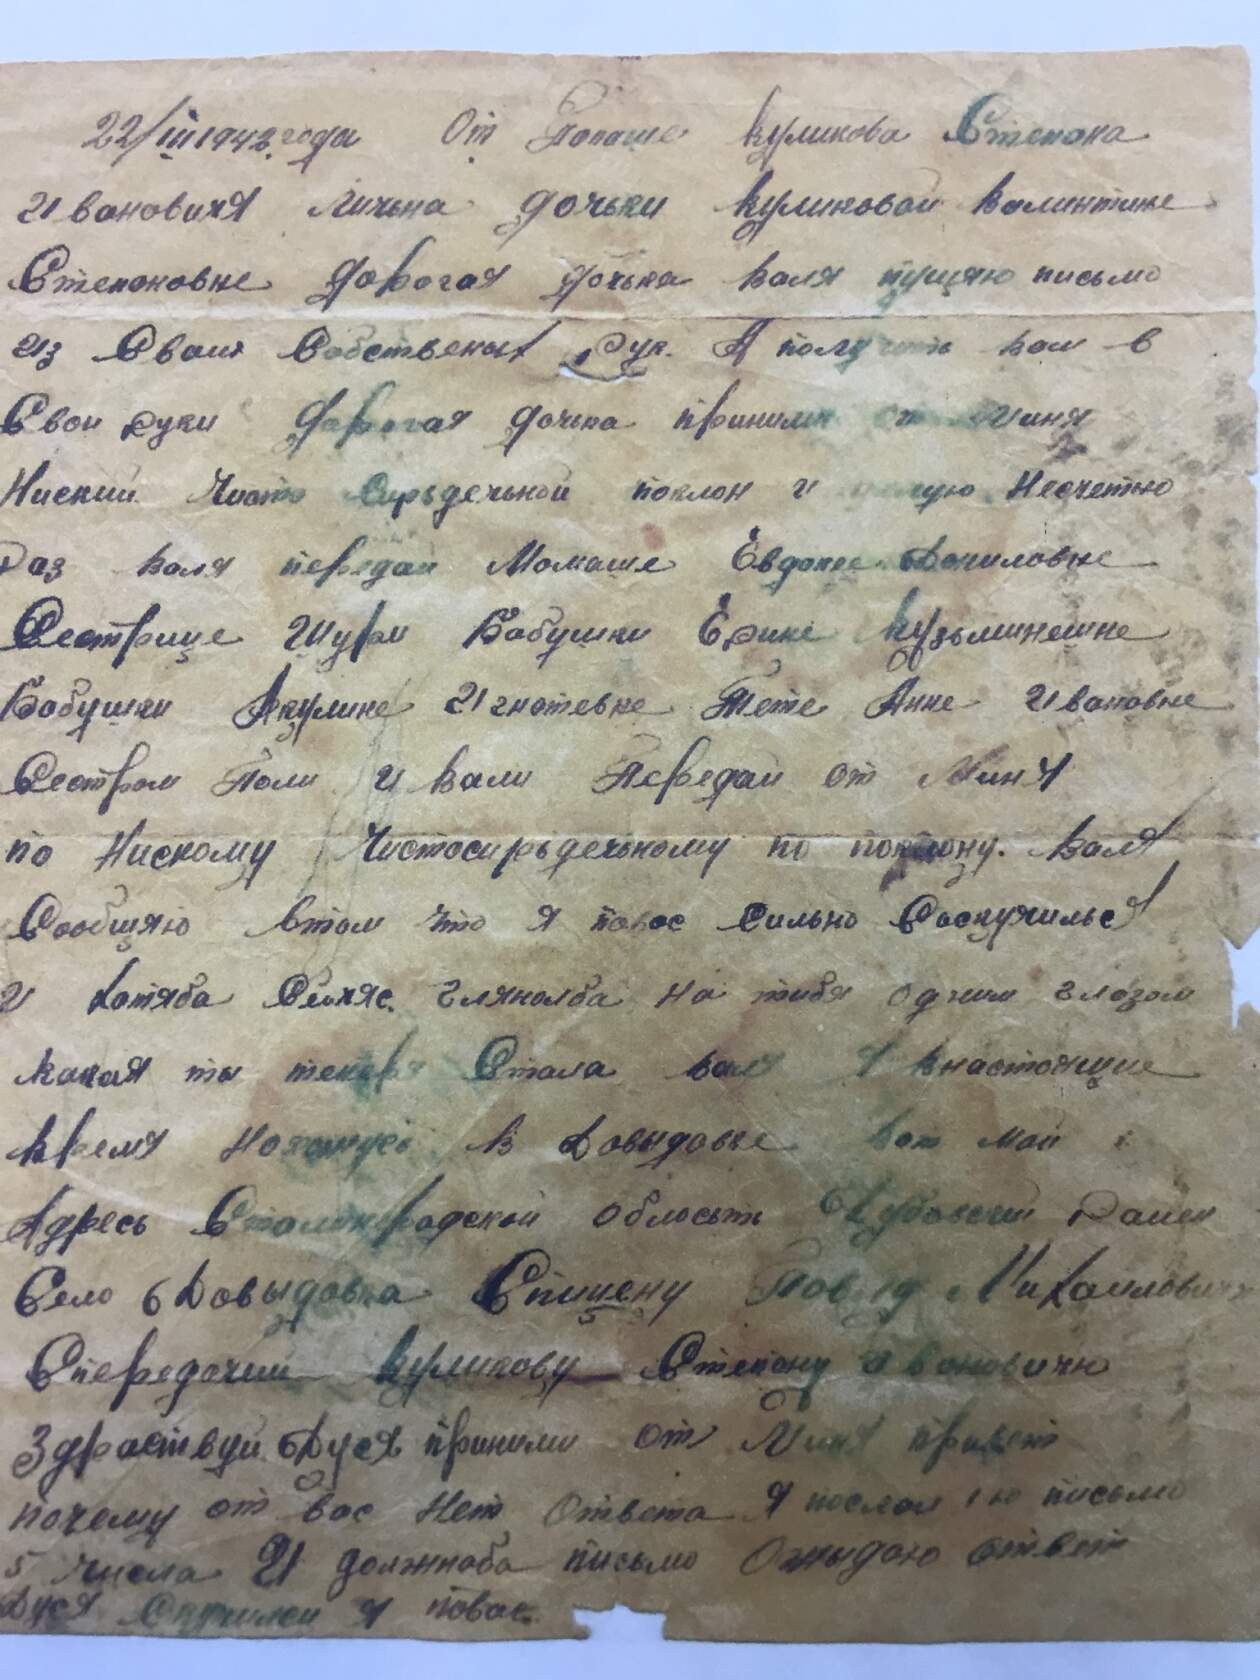 22/III 1943 года От Папаше Куликова Степана
Ивановичя лична дочьки Куликовой Валинтине
Степановне Дорогая дочька Валя пущяю письмо
из Своих Собственых Рук. А получить вам в
Свои руки Дорогая дочька приними от миня
Ниский Чисто сирьдечьной поклон и целую Несчетно
Раз Валя передай Мамаше Евдокее Даниловне
Сестрице Шури Бабушки Ерине Кузьминешне
Бабушки Акулине Игнотевне Тете Анне Ивановне
Сестрам Поли и Вали Передай от Миня
по Нискому Чистосирьдечьному по поклону. Валя
Сообщяю втом что я повас Сильно Соскучильсе
и хотяба Сейчяс глянолба на тибя одним глазом
какая ты теперя Стала Валя Я внастоящие
время Нахожусь в Давыдовке вот мой
Адресь Сталинградской обласьть Дубовский Район
Село Давыдовка Спицену Павлу Михаиловичю
Спередачий Куликову Степану Ивановичю
Здраствуй Дуся приними от Миня привет
почему от вас Нет Ответа Я послал 1ю письмо
5 числа И должноба письмо Ожыдаю ответ
Дуся Скучилси я повас.